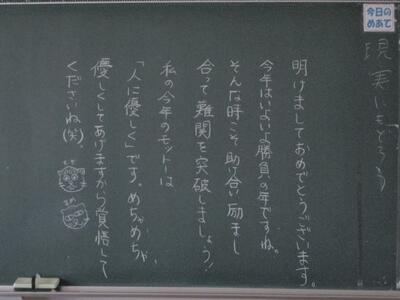 今日の
めあて
現実にもどろう
明けましておめでとうございます。
今年はいよいよ勝負の年ですね。
そんな時こそ助け合い励まし
合って難関を突破しましょう!
私の今年のモットーは
「人に優しく」です。めちゃめちゃ
優しくしてあげますから覚悟して
くださいね(笑)